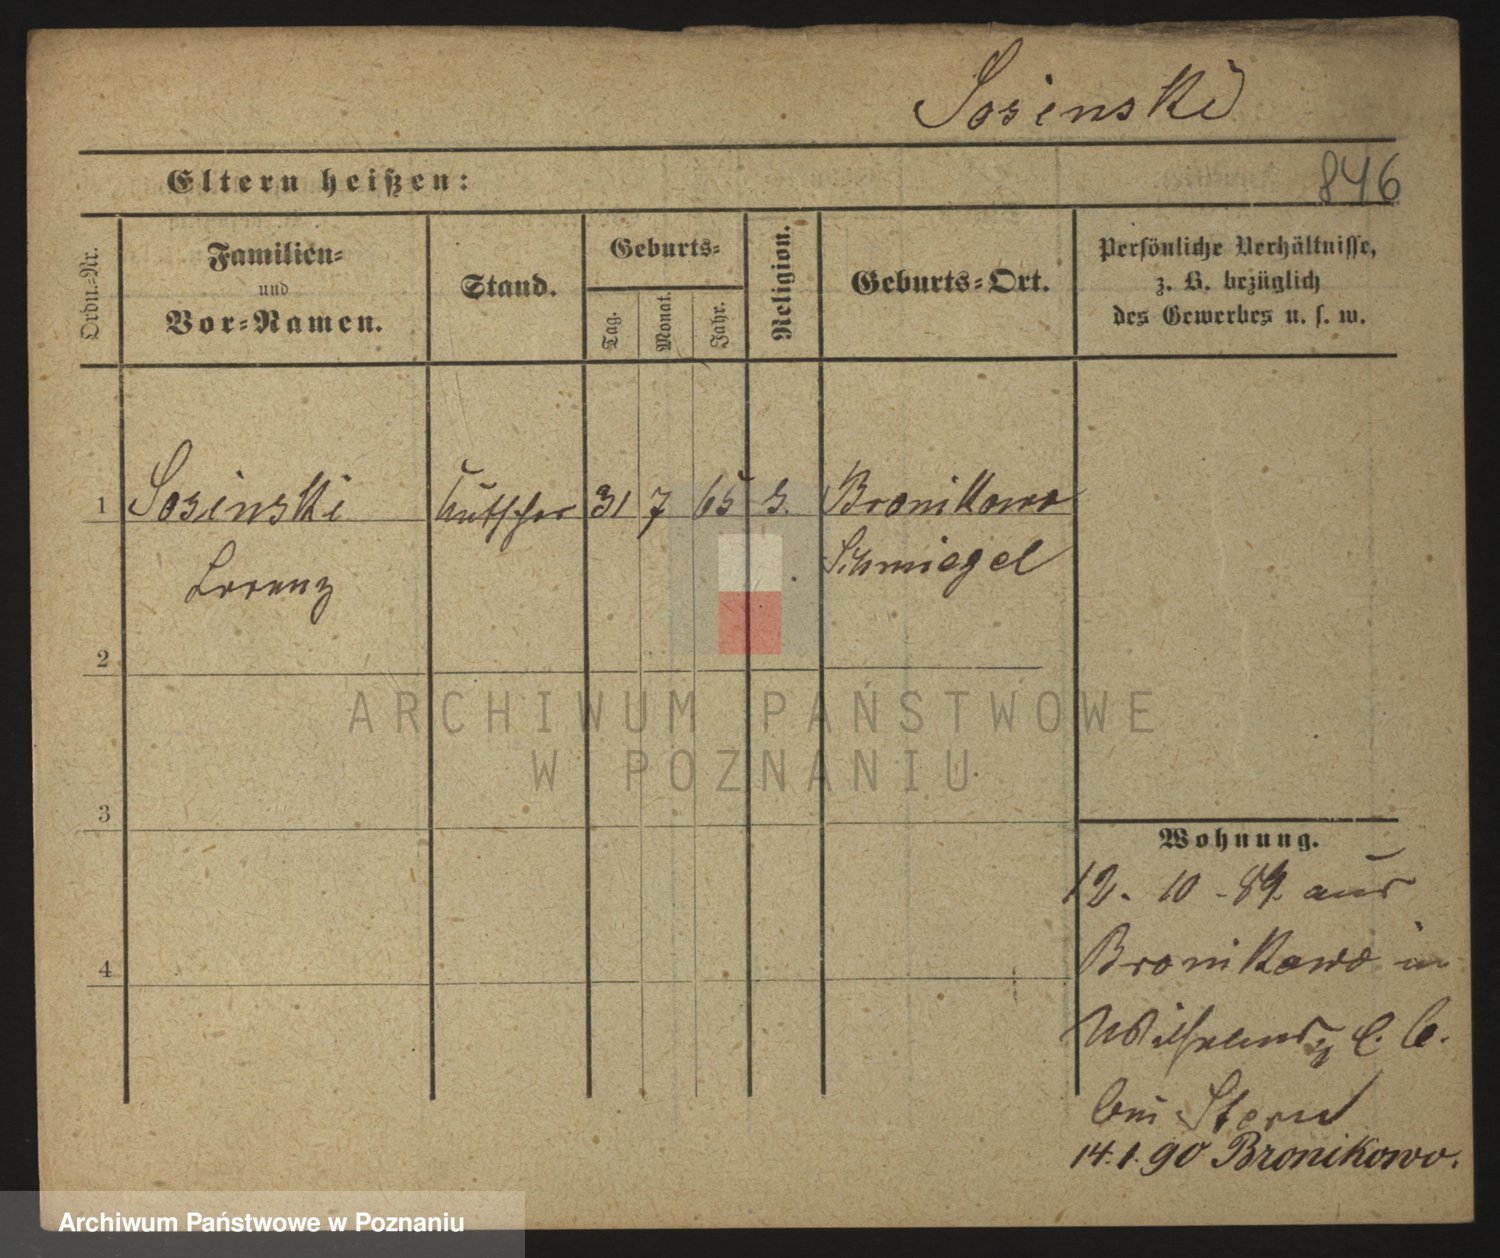 Sosinski
Eltern heißen:
846
Ordn.-Nr.
Familien-
und
Vor-Namen.
Stand.
Geburts-
Tag.
Monat.
Jahr.
Religion.
Geburts-Ort.
Persönliche Verhältnisse,
z. B. bezüglich
des Gewerbes u. s. w.
1 Sosinski Kutscher 31 7 65 Bronikowo
Lorenz Schmiegel
2
3
4
ARCHIWUM PAŃSTWOWE
W POZNANIU
Wohnung.
12. 10 - 89. aus
Bronikowo in
bei Stern
14.1.90 Bronikowo.
Archiwum Państwowe w Poznaniu